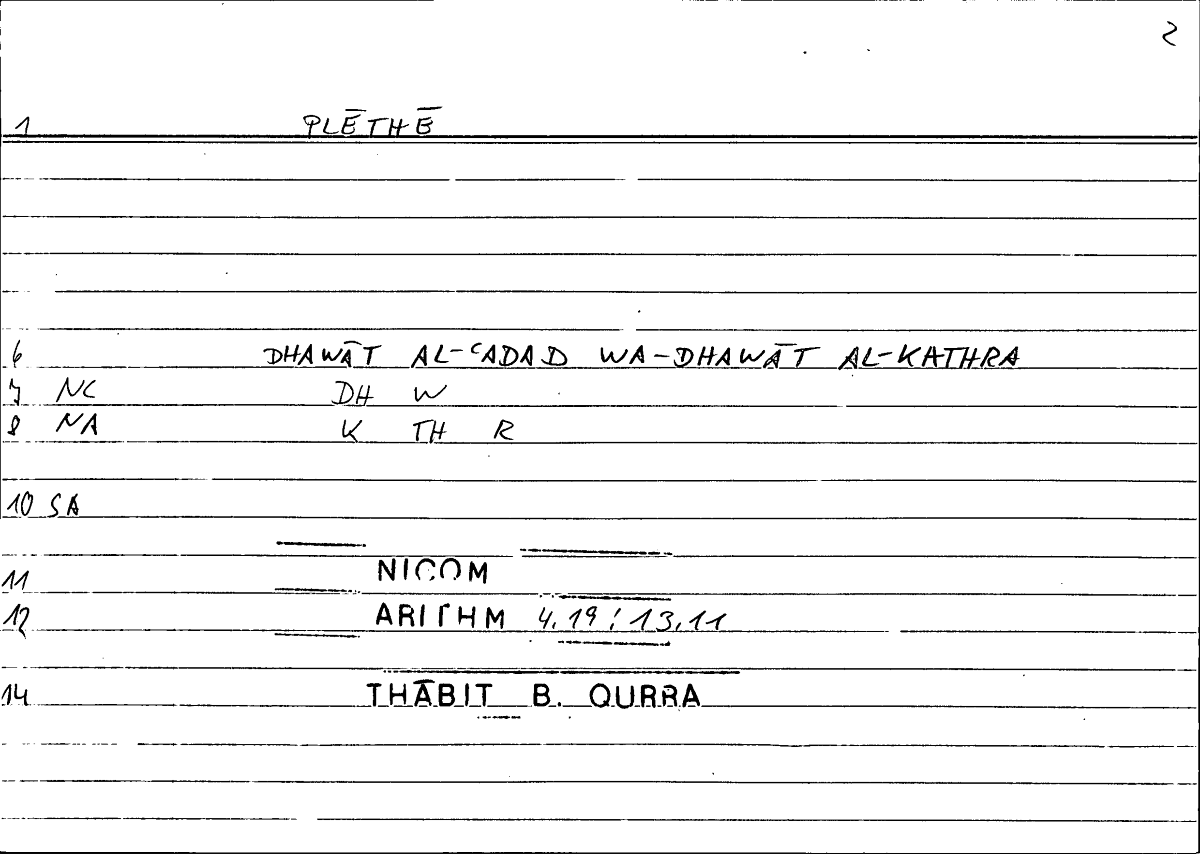 2
1 PLĒTHĒ
6 DHAWĀT AL-ʿADAD WA-DHAWĀT AL-KATHRA
7 NC DH W
8 NA K TH R
10 SA
11 NICOM
12 ARITHM 4.19 : 13.11
14 THĀBIT B. QURRA